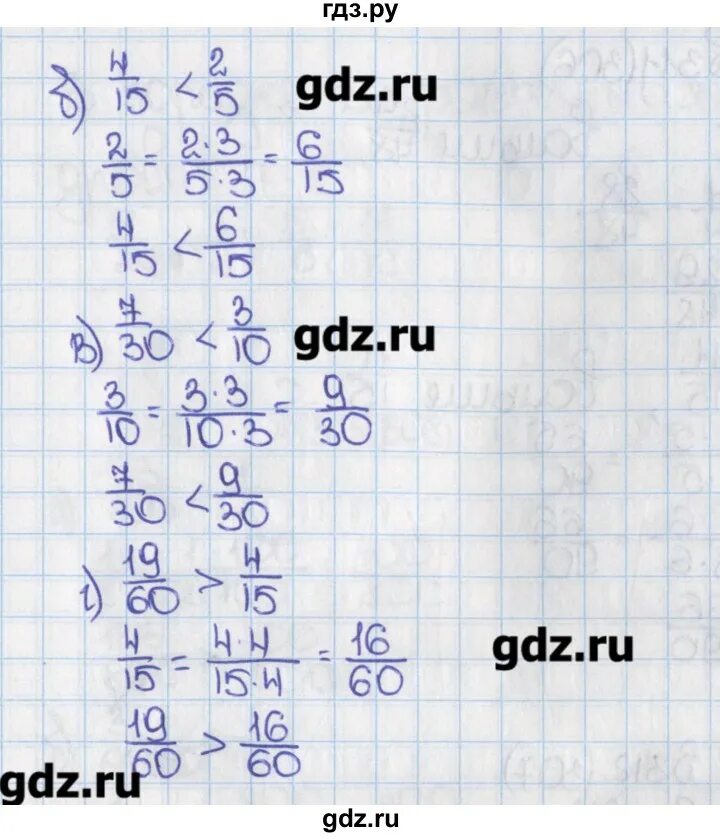 гдз.ру
б) 4/15 < 2/5
gdz.ru
2/5 = 2·3/5·3 = 6/15
4/15 < 6/15
в) 7/30 < 3/10
gdz.ru
3/10 = 3·3/10·3 = 9/30
7/30 < 9/30
г) 19/60 > 4/15
4/15 = 4·4/15·4 = 16/60
gdz.ru
19/60 > 16/60
gdz.ru
gdz.ru